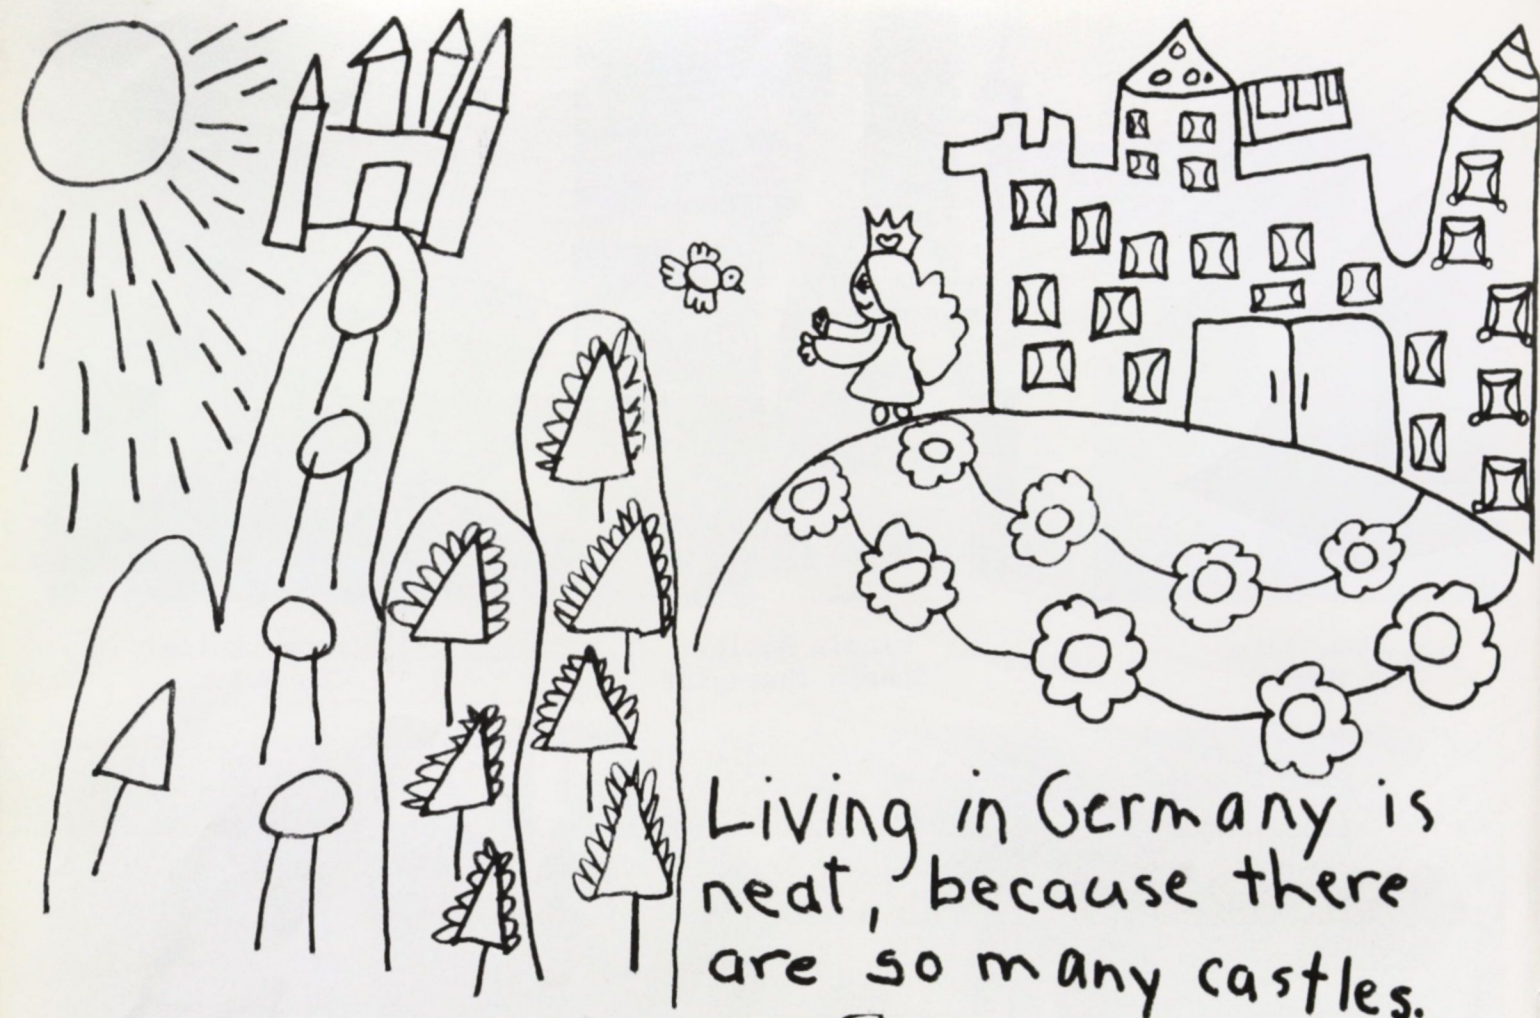 Living in Germany is
neat, because there
are so many castles.